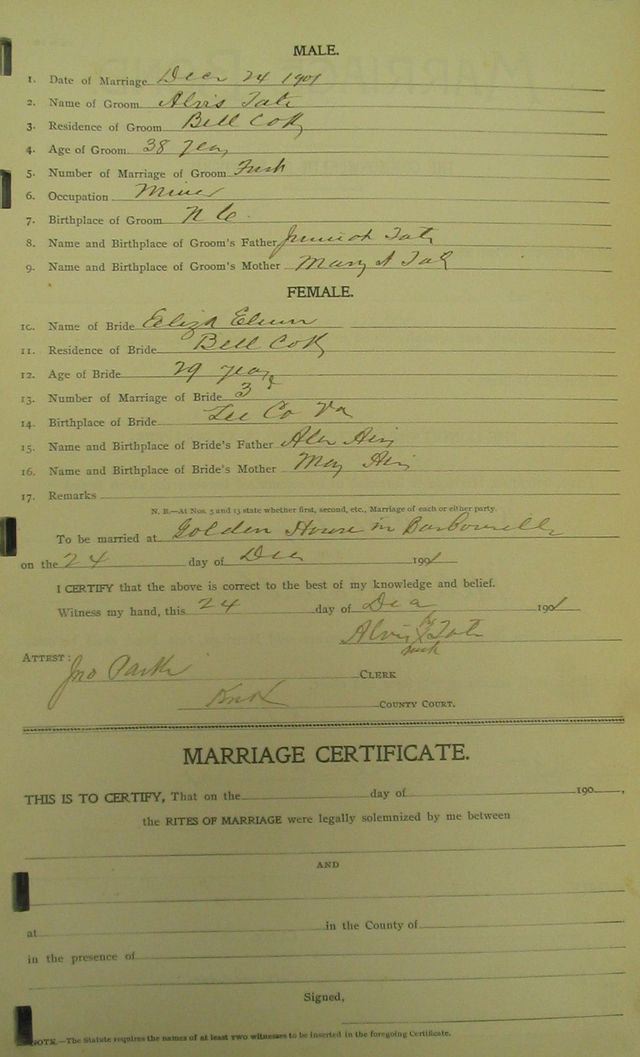 MALE.
1. Date of Marriage Decr 24 1901
2. Name of Groom Alvis Tate
3. Residence of Groom Bell Co Ky
4. Age of Groom 38 years
5. Number of Marriage of Groom First
6. Occupation Miner
7. Birthplace of Groom N C
8. Name and Birthplace of Groom's Father Tate
9. Name and Birthplace of Groom's Mother Mary A Tate
FEMALE.
10. Name of Bride Eliza
11. Residence of Bride Bell Co Ky
12. Age of Bride 29 years
13. Number of Marriage of Bride 3d
14. Birthplace of Bride Lee Co Va
15. Name and Birthplace of Bride's Father
16. Name and Birthplace of Bride's Mother
17. Remarks
N. B.—At Nos. 5 and 13 state whether first, second, etc., Marriage of each or either party.
To be married at Golden House in Barbourville
on the 24 day of Dec 1901
I CERTIFY that the above is correct to the best of my knowledge and belief.
Witness my hand, this 24 day of Dec 1901
Alvis X Tate
mark
ATTEST:
Jno Parker CLERK
Knox COUNTY COURT.
MARRIAGE CERTIFICATE.
THIS IS TO CERTIFY, That on the day of 190
the RITES OF MARRIAGE were legally solemnized by me between
AND
at in the County of
in the presence of
Signed,
NOTE.—The Statute requires the names of at least two witnesses to be inserted in the foregoing Certificate.